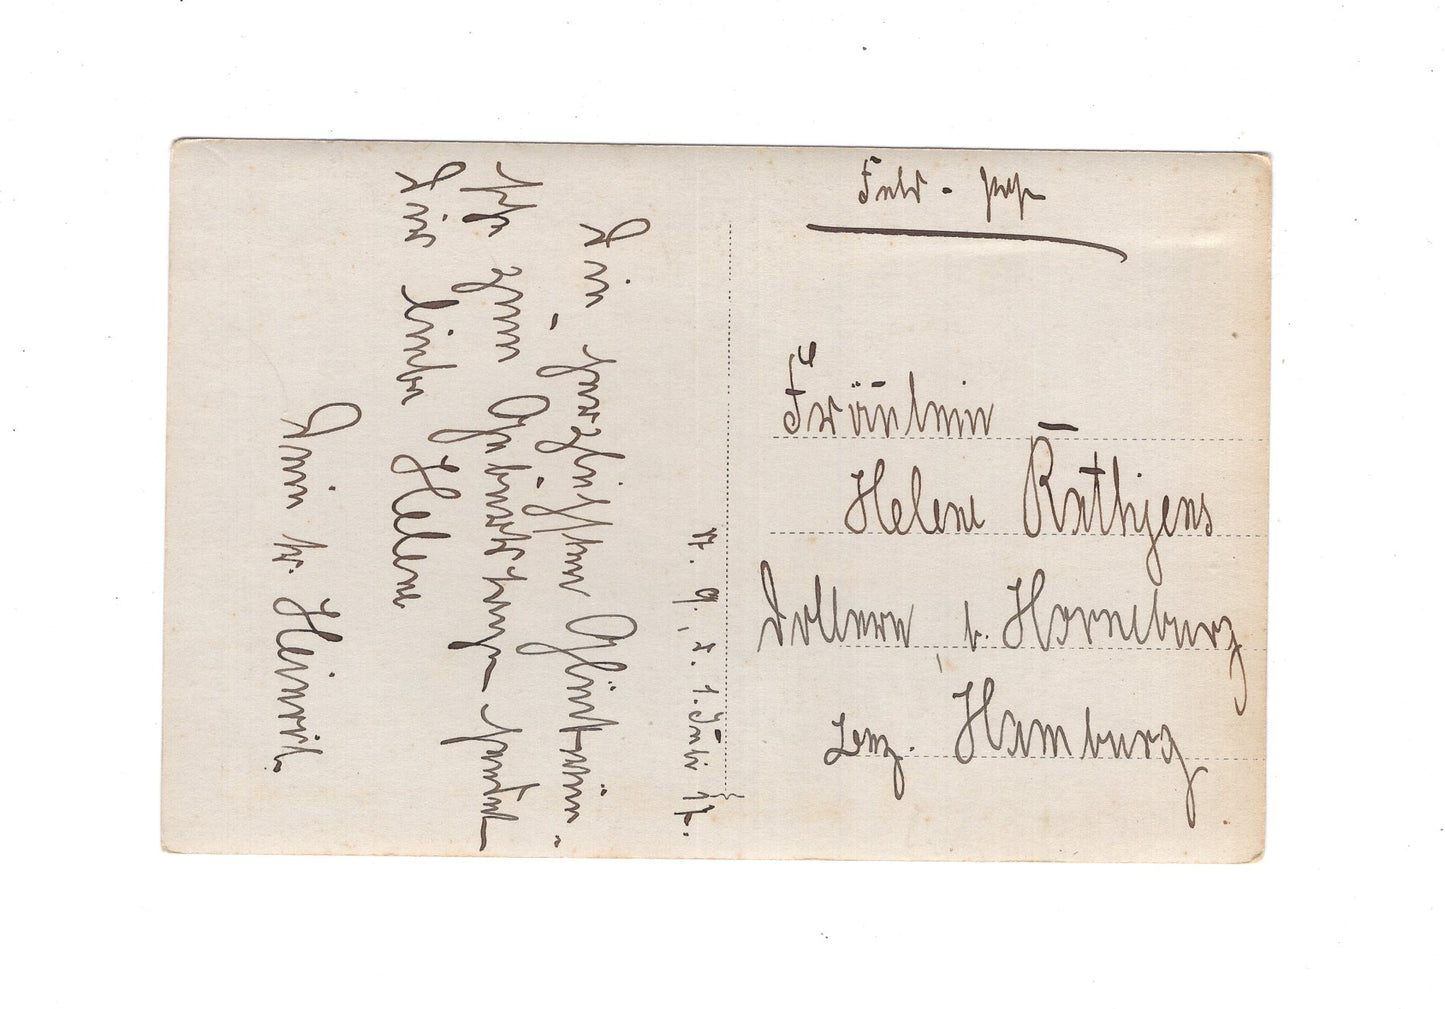 Feld-post
Fräulein
Helene Rathjens
Dollern b. Horneburg
Bez. Hamburg
1. Juli 17.
Die herzlichsten Glückwün-
sche zum Geburtstage sendet
Dir liebe Helene
Dein
Heinrich